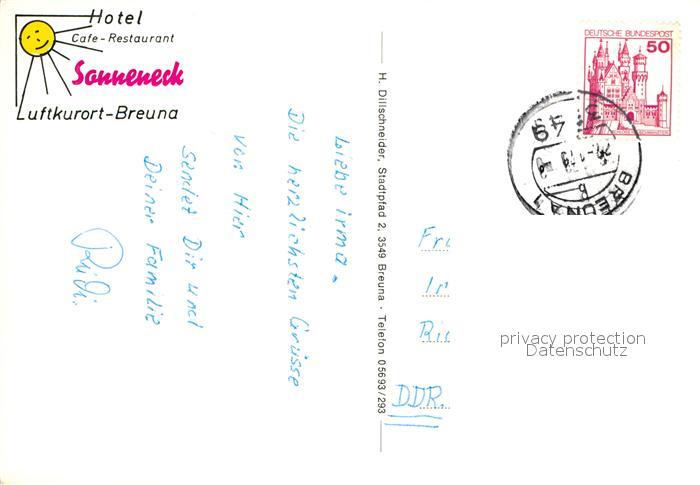 Hotel
Cafe-Restaurant
Sonneneck
Luftkurort-Breuna
Liebe Irma.
Die herzlichsten Grüsse
von Hier
sendet Dir und
Deiner Familie
H. Dillschneider, Stadtpfad 2, 3549 Breuna · Telefon 05693/293
DEUTSCHE BUNDESPOST
50
BREUNA 1
Fr
Ir
Ri
DDR.
privacy protection
Datenschutz